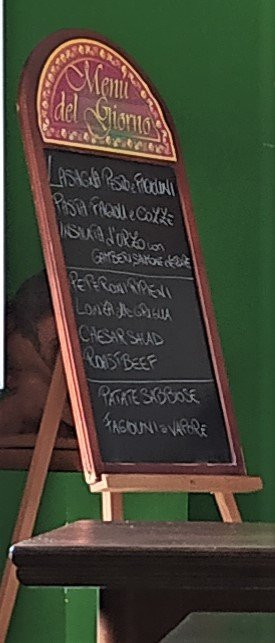 Menú
del Giorno
LASAGNA PESTO e FAGIOLINI
PASTA FAGIOLI e COZZE
INSALATA d'ORZO con
GAMBERI SALMONE e
PEPERONI RIPIENI
LONZA ALLA GRIGLIA
CAESAR SALAD
ROAST BEEF
PATATE SABBIOSE
FAGIOLINI a VAPORE